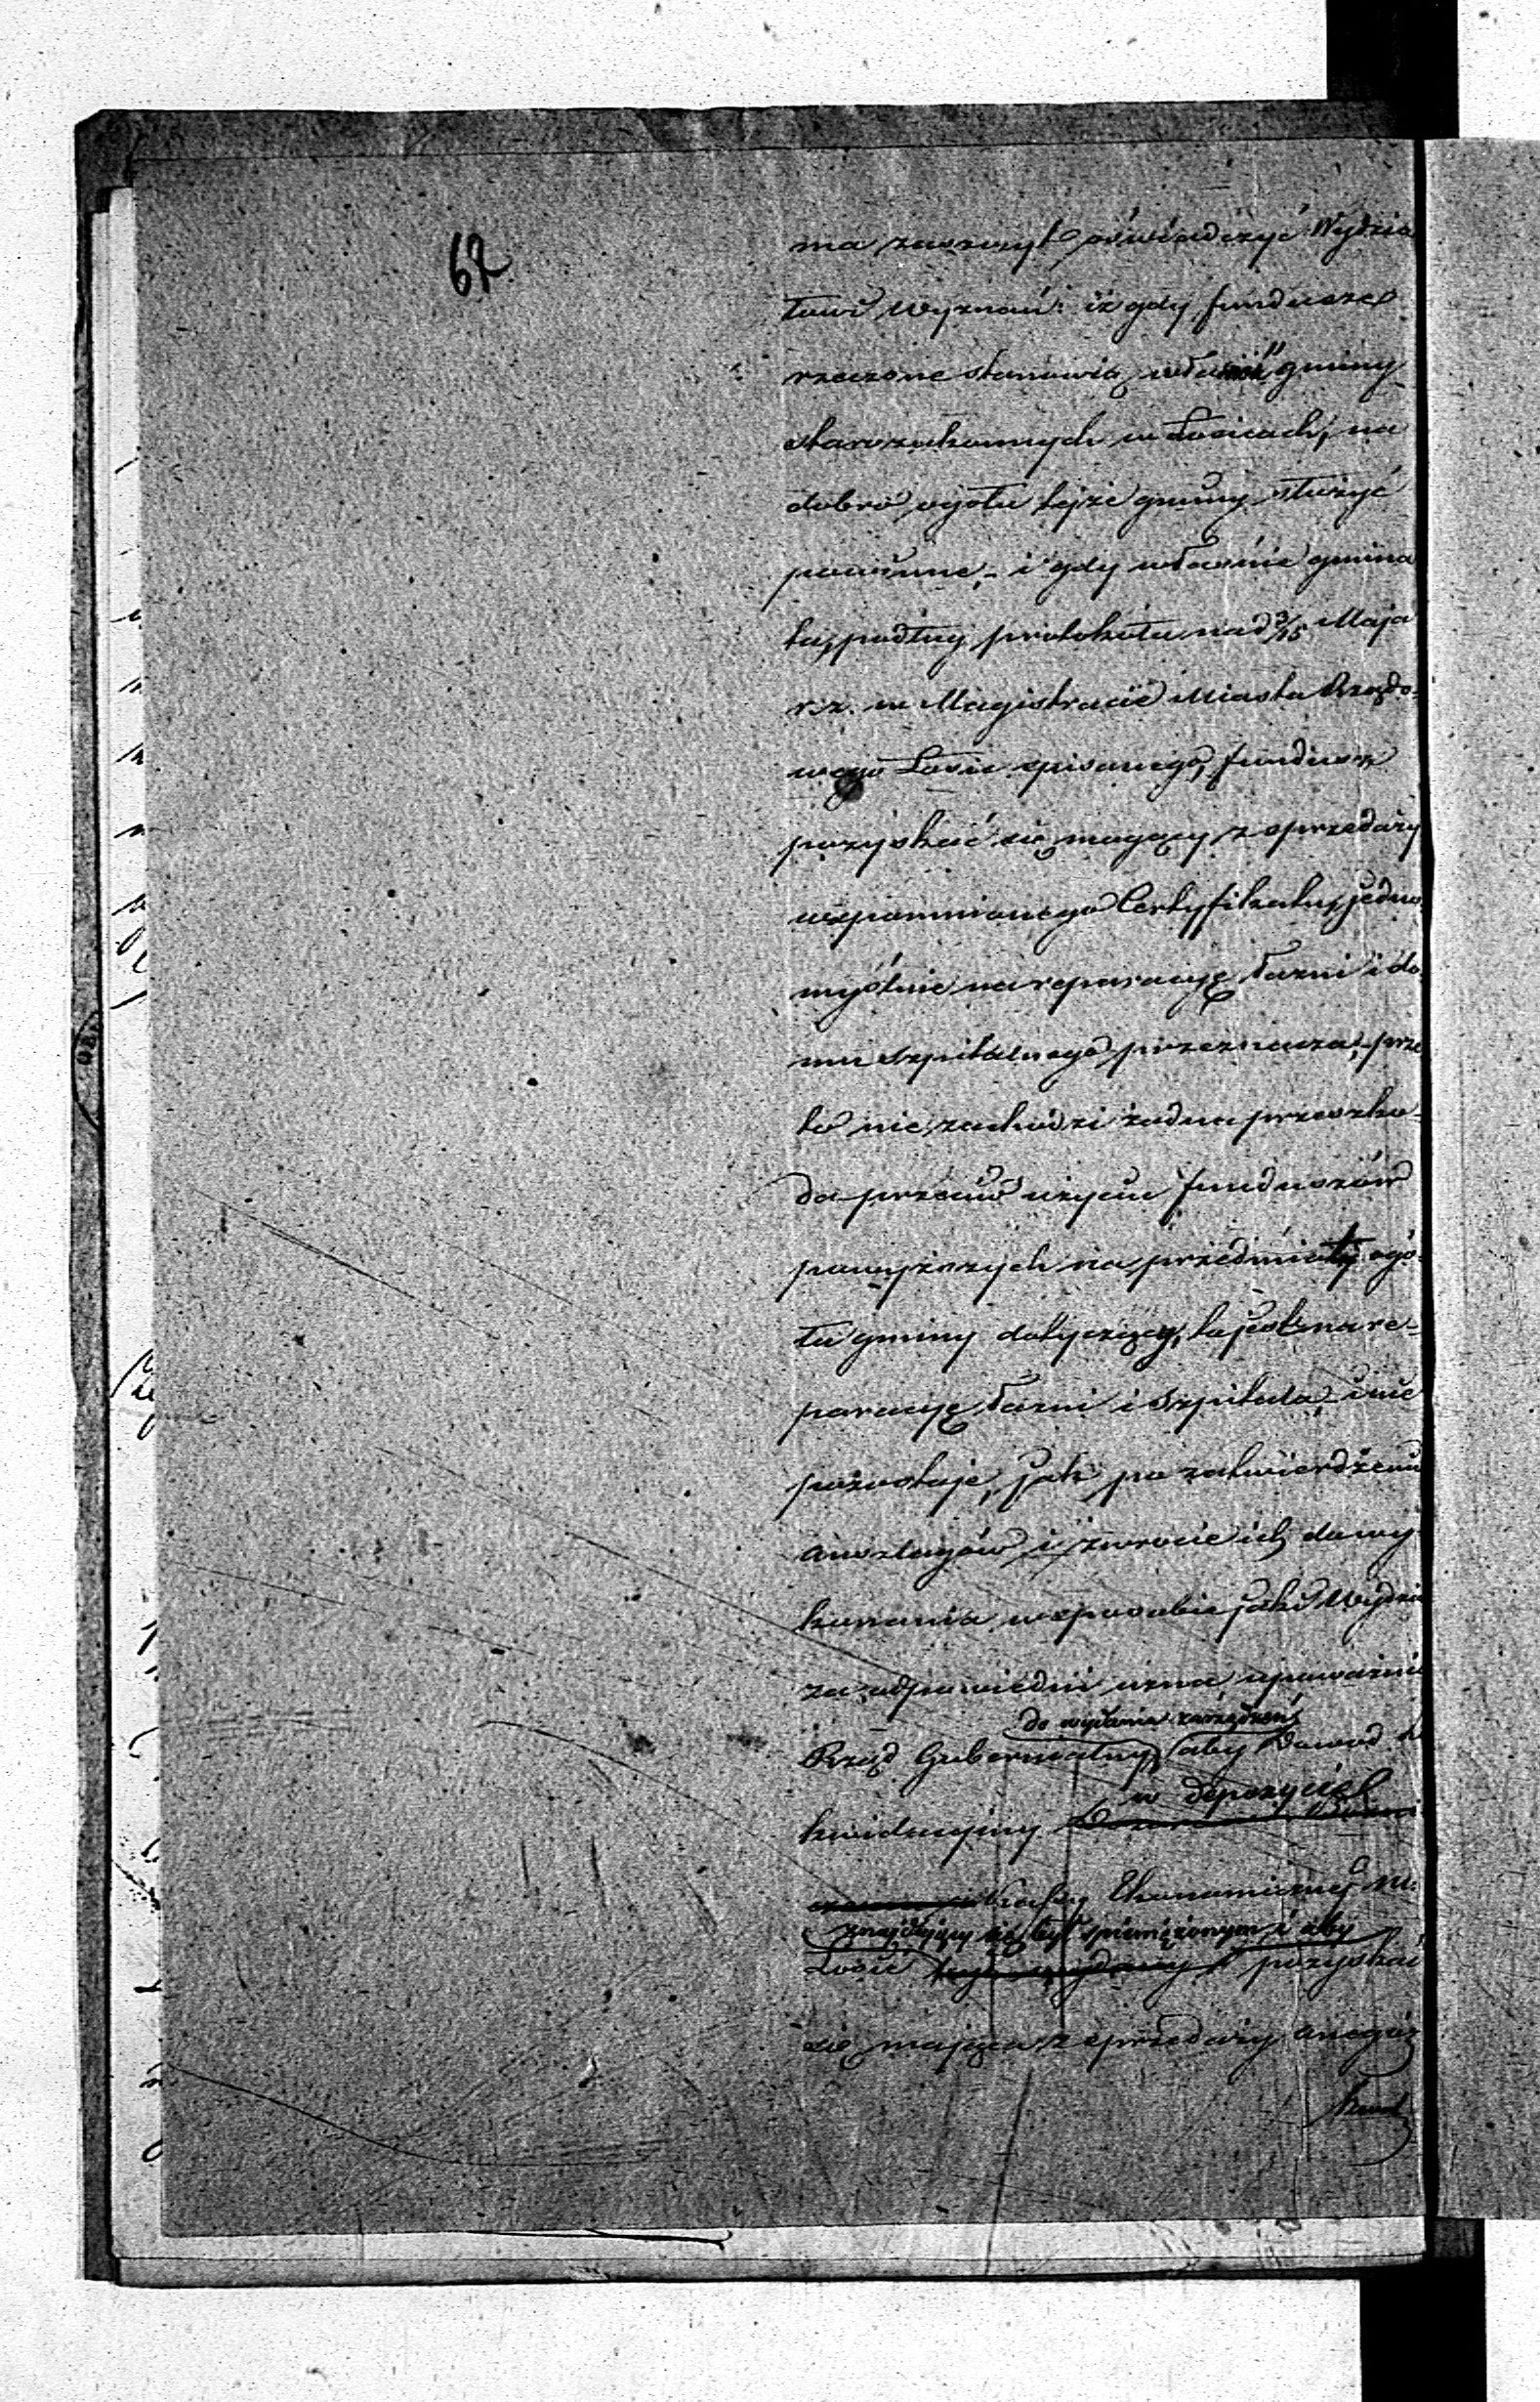 62
ma zaszczyt oświadczyć Wydzia
łowi Wyznań: iż gdy fundusze
rzeczone stanowią własność gminy
starozakonnych w Łosicach, na
dobro ogółu tejże gminy służyć
powinne, - i gdy właśnie gmina
ta, podług protokółu nad 3/15 Maja
r. z. w Magistracie Miasta Rządo-
wego Łosic spisanego, fundusz
pozyskać się mogący z sprzedaży
wspomnionego Certyfikatu, jedno
myślnie na reparacyę łaźni i do
mu szpitalnego przeznacza, - prze
to nie zachodzi żadna przeszko-
da przeciw użyciu funduszów
powyższych na przedmioty ogó-
łu gminy dotyczące, to jest na re-
paracyę łaźni i szpitala, i nie
pozostaje, jak po zatwierdzeniu
anszlagów i zwrocie ich do wy
konania w sposobie jaki Wydzia
za odpowiedni uzna upoważnić
do wydania zarządzeń
Rząd Gubernialny aby Dowód li
w depozycie
kwidacyjny
Kassy Ekonomicznej M.
znajdujący się był spieniężonym i aby
Łosic pozyskać
się mająca z sprzedaży onegoż